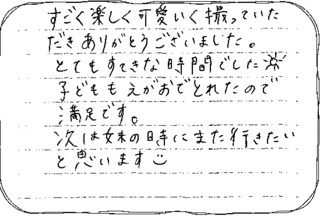 すごく楽しく可愛いく撮っていた
だきありがとうございました。
とてもすてきな時間でした☀
子どももえがおでとれたので
満足です。
次は妹の時にまた行きたい
と思います☺